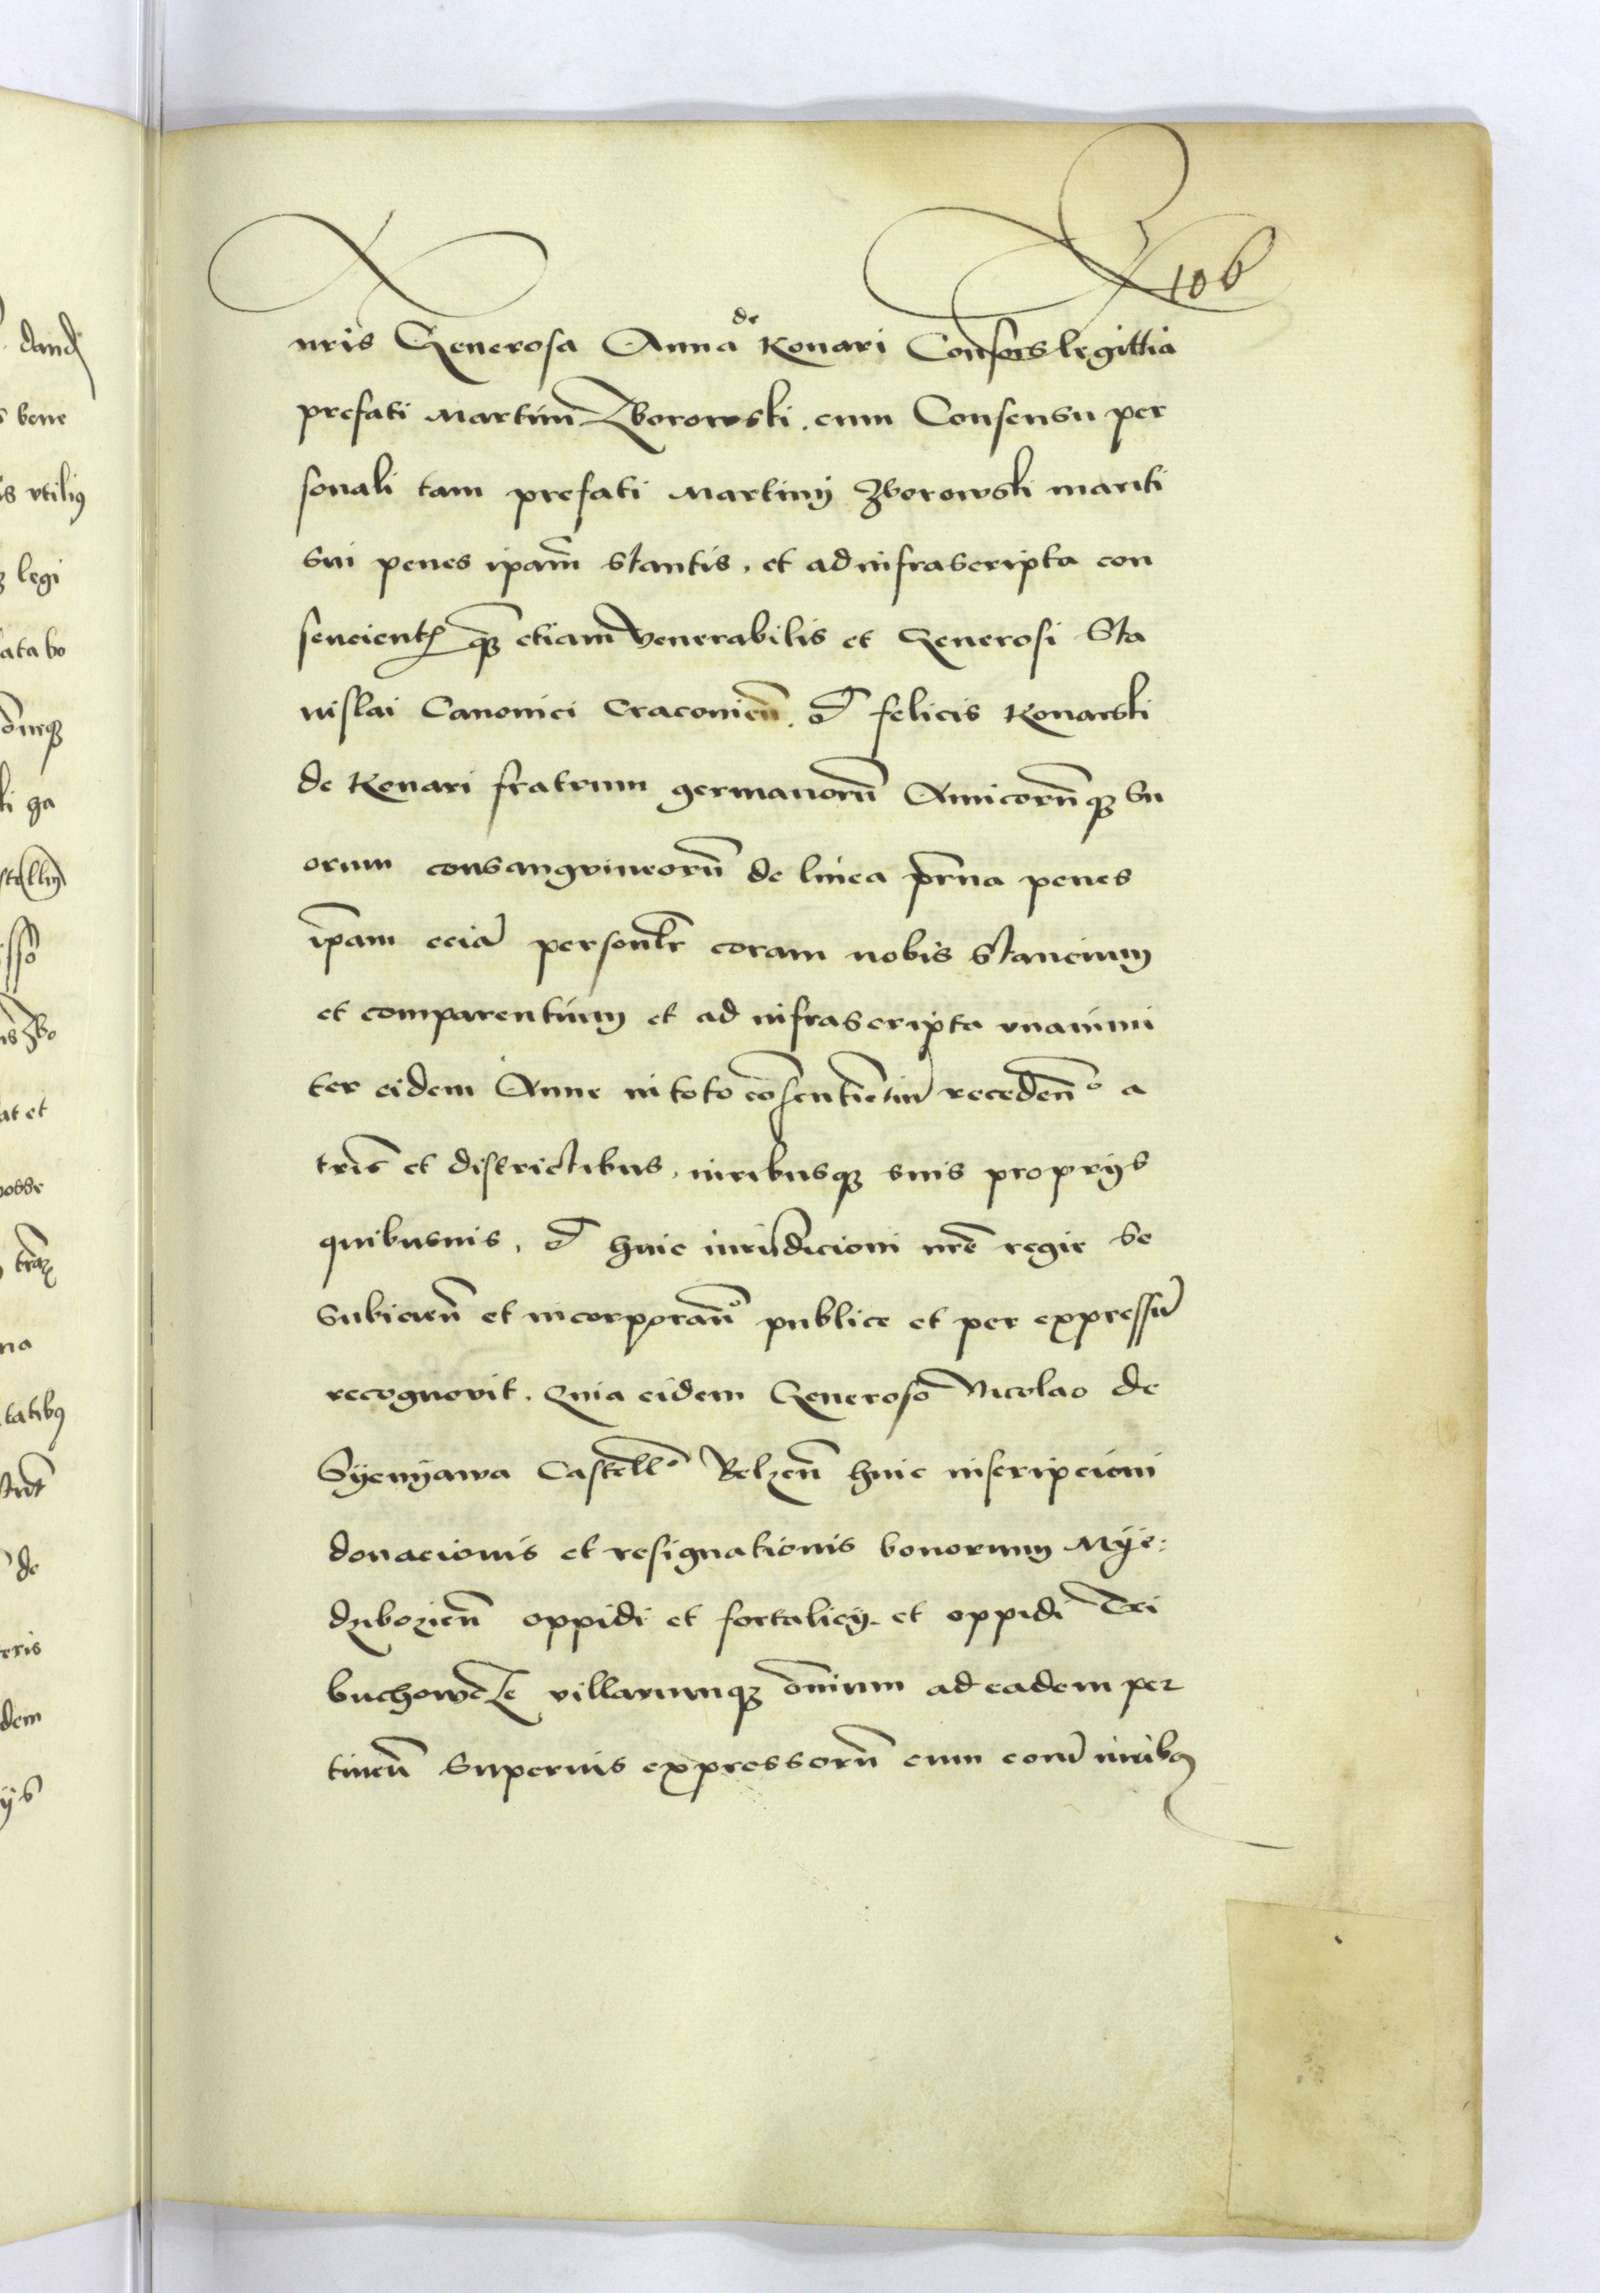 106
nris Generosa Anna de Konari Consors legittia
prefati Martini Zborowski. cum Consensu per
sonali tam prefati Martinij Zborowski mariti
sui penes ipam stantis, et ad infrascripta con
sencient(is) q(ue) etiam venerabilis et Generosi Sta
nislai Canonici Cracovien. et felicis Konarski
de Konari fratrum germanoru Amicoruq(ue) su
orum consangvineoru de linea prna penes
ipam ecia personlr coram nobis stancium
et comparentium et ad infrascripta unanimi
ter eidem Anne in toto cosentientiu receden° a
tris et districtibus, iuribusq(ue) suis proprijs
quibusuis, et huic iurisdicioni nre regie se
subicien et incorporan° publice et per expressu
recognovit. Quia eidem Generoso Nicolao de
Syenyawa Castell° Belzen huic inscripcioni
donacionis et resignationis bonorum Mye:
dzibozien oppidi et fortalicij. et oppidi Tri
buchowcze villarumq(ue) omnium ad eadem per
tinen superius expressoru cum eoru iurib(us)
dandi
bene
utili(us)
legi
ata bo
ki ga
at et
tatib(us)
de
eris
dem